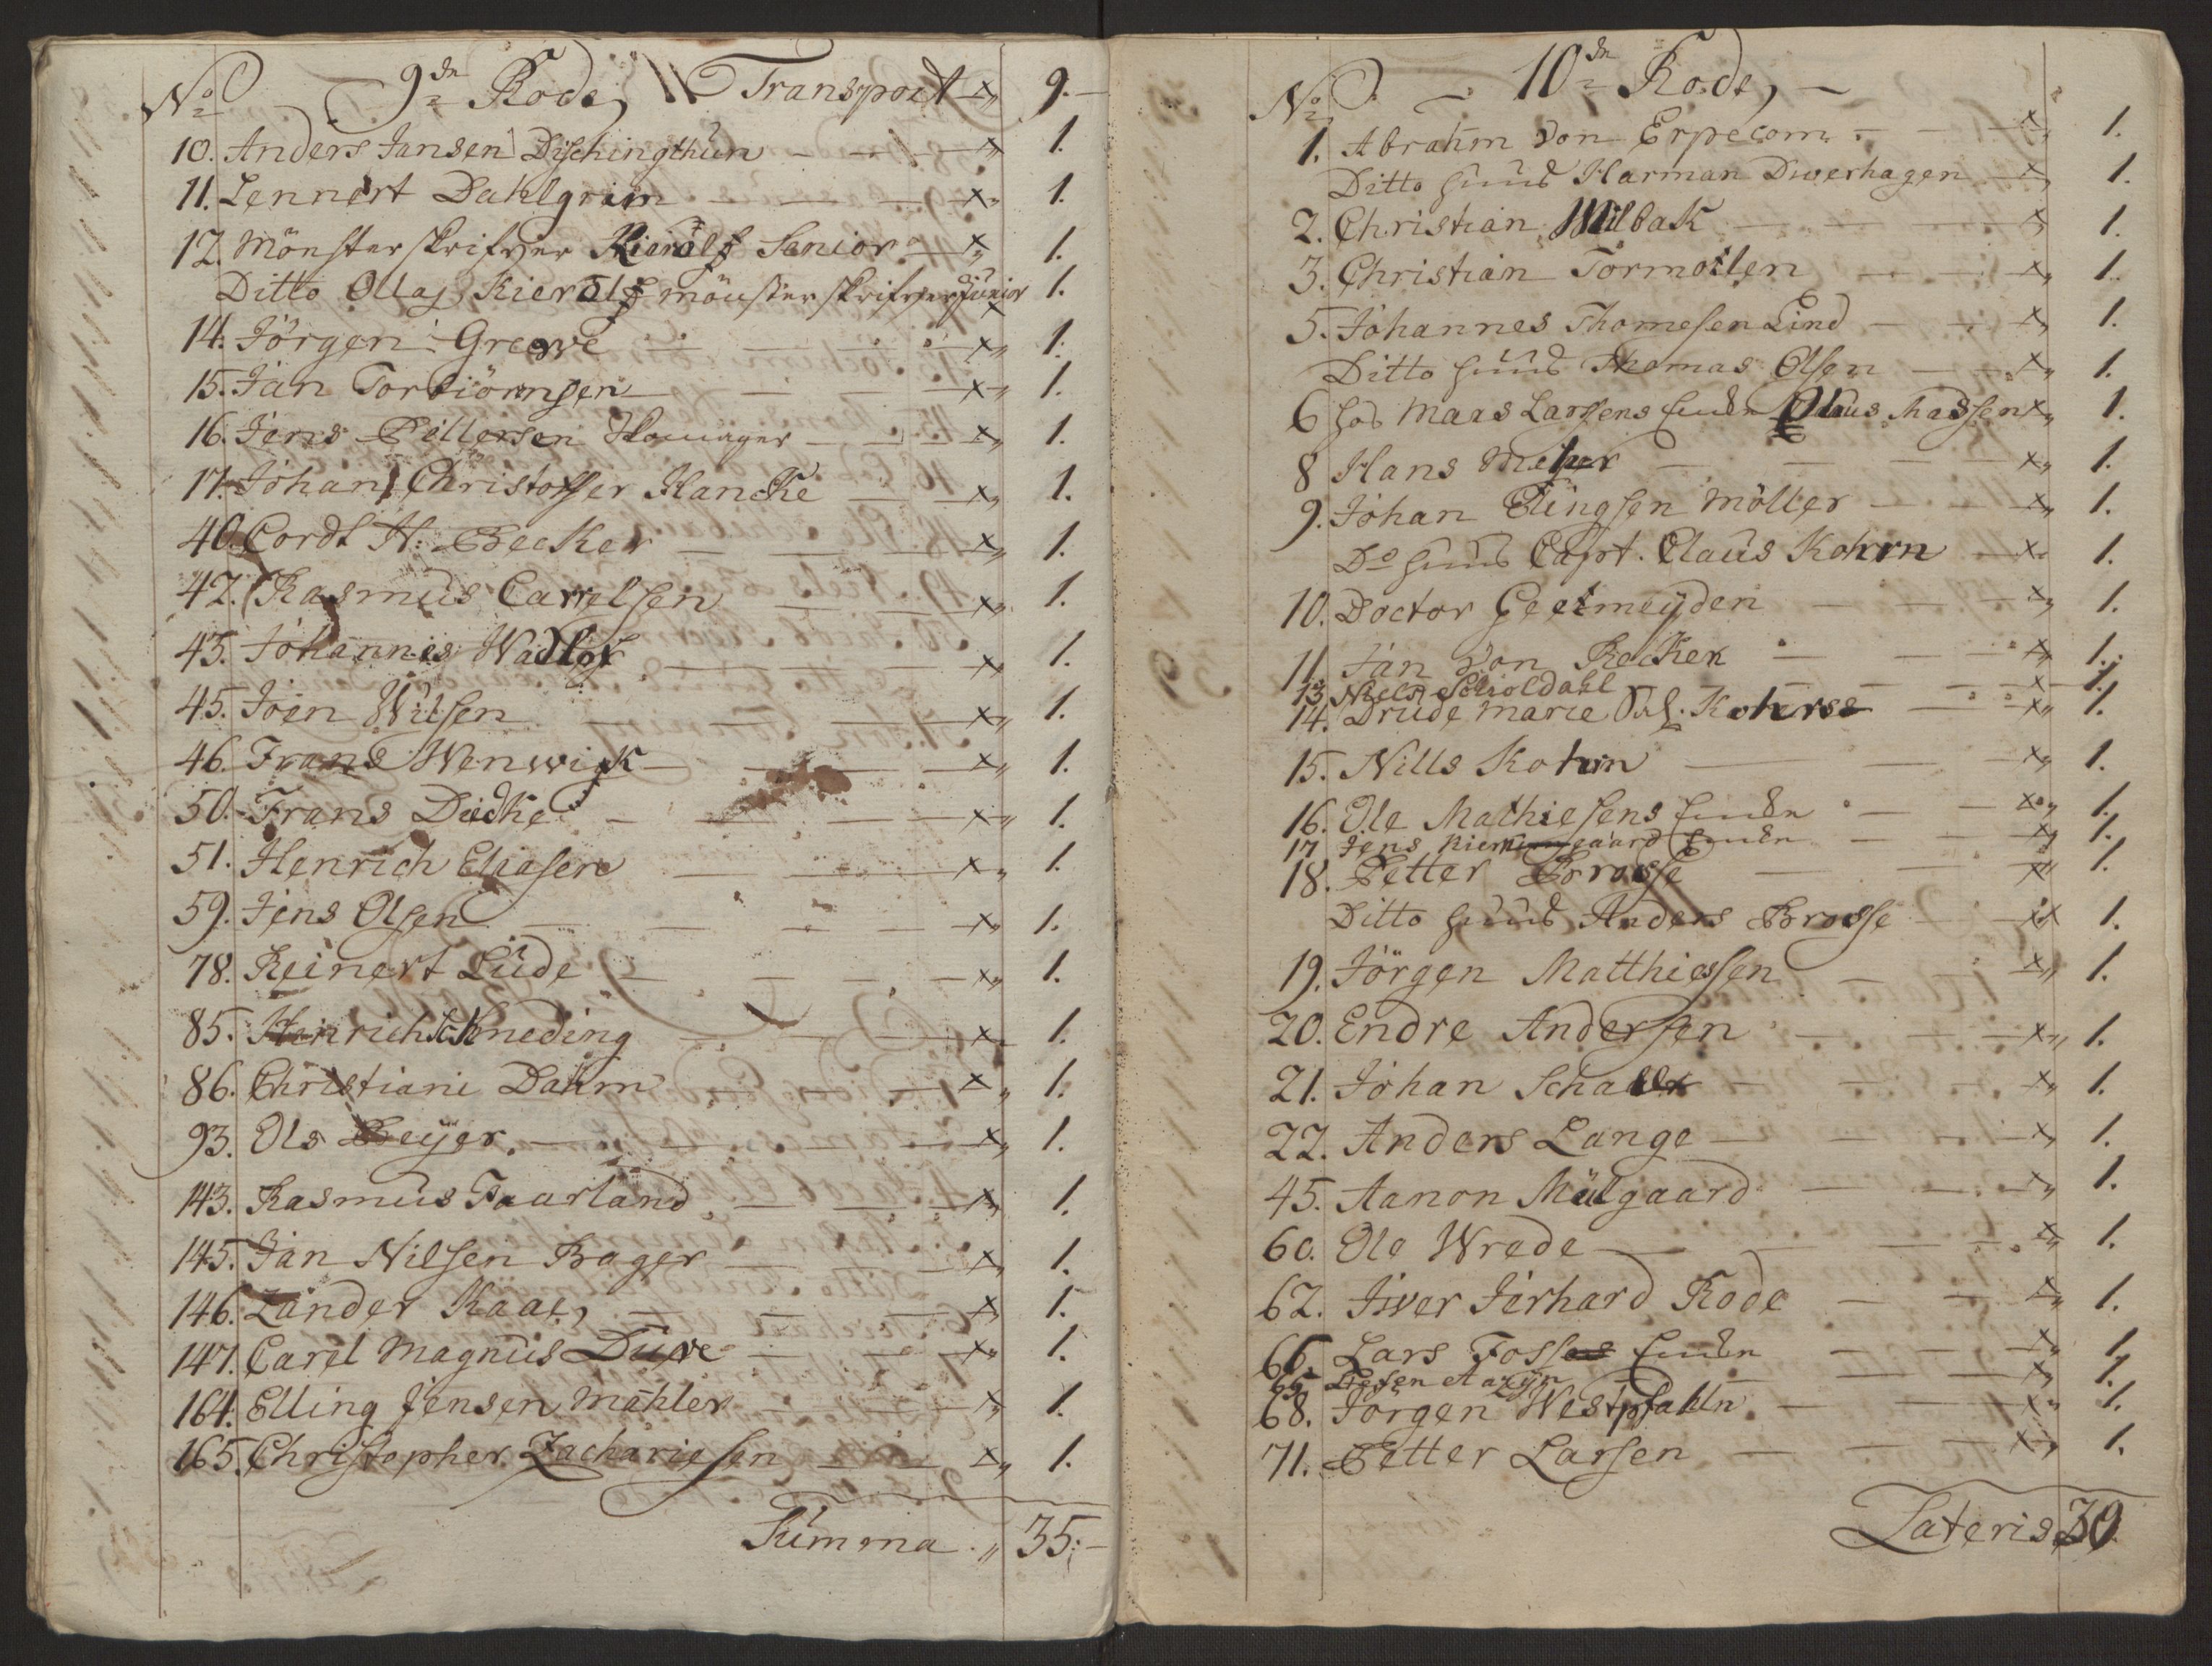 No 9de Rode, Transport 9.
10. Anders Jansen Dischingthun 1.
11. Lennert Dahlgrim 1.
12. Mönsterskrifver Kierölf Senior 1.
Ditto Ollaj Kierölf mönsterskrifver Junior 1.
14. Jörgen Greeve 1.
15. Jan Torbiörnsen 1.
16. Jens Pettersen Skomager 1.
17. Johan Christoffer Hancke 1.
40. Cordt H: Becker 1.
42. Rasmus Carrelsen 1.
43. Johannes Wadlof 1.
45. Joen Wilsen 1.
46. Frans Wenwick 1.
50. Frans Diedke 1.
51. Henrich Eliasen 1.
59. Jens Olsen 1.
78. Reinert Lüde 1.
85. Henrich Schneding 1.
86. Christiani Dahm 1.
93. Ols Beyer 1.
143. Rasmus Faarland 1.
145. Jan Nilsen Bager 1.
146. Zander Kaae, 1.
147. Carel Magnus Düve 1.
164. Elling Jensen Mahler 1.
165. Christopher Zachariesen 1.
Summa 35:
No 10de Rode,
1. Abrahm von Erpecom 1.
Ditto huus Harman Dwerhagen 1.
2. Christian Milbak 1.
3. Christian Tormöllen 1.
5. Johannes Thomesen Lind 1.
Ditto huus Thomas Olsen 1.
6 hos Maas Larsens Encke Olaus Massen 1.
8 Hans Meyer 1.
9. Johan Elingsen Möller 1.
Do huus Capt. Claus Kohrn 1.
10. Doctor Geelmeyden 1.
11. Jan von Recken 1.
13 Niels Schioldahl 1.
14. Drude Marie Sal. Kohrs 1.
15. Nills Kohrn 1.
16. Ole Mathiesens Encke 1.
17 Jens Kierkegaard Encke 1.
18. Petter Brosse 1.
Ditto huus Anders Brosse 1.
19. Jörgen Matthiessen 1.
20. Endre Andersen 1.
21. Johan Schaltz 1.
22. Anders Lange 1.
45. Aanon Mülgaard 1.
60. Ole Wrede 1.
62. Jiver Jerhard Rode 1.
65. Lars Foss Encke 1.
1.
68. Jörgen Westpfahln 1.
71. Petter Larsen 1.
Lateris 30